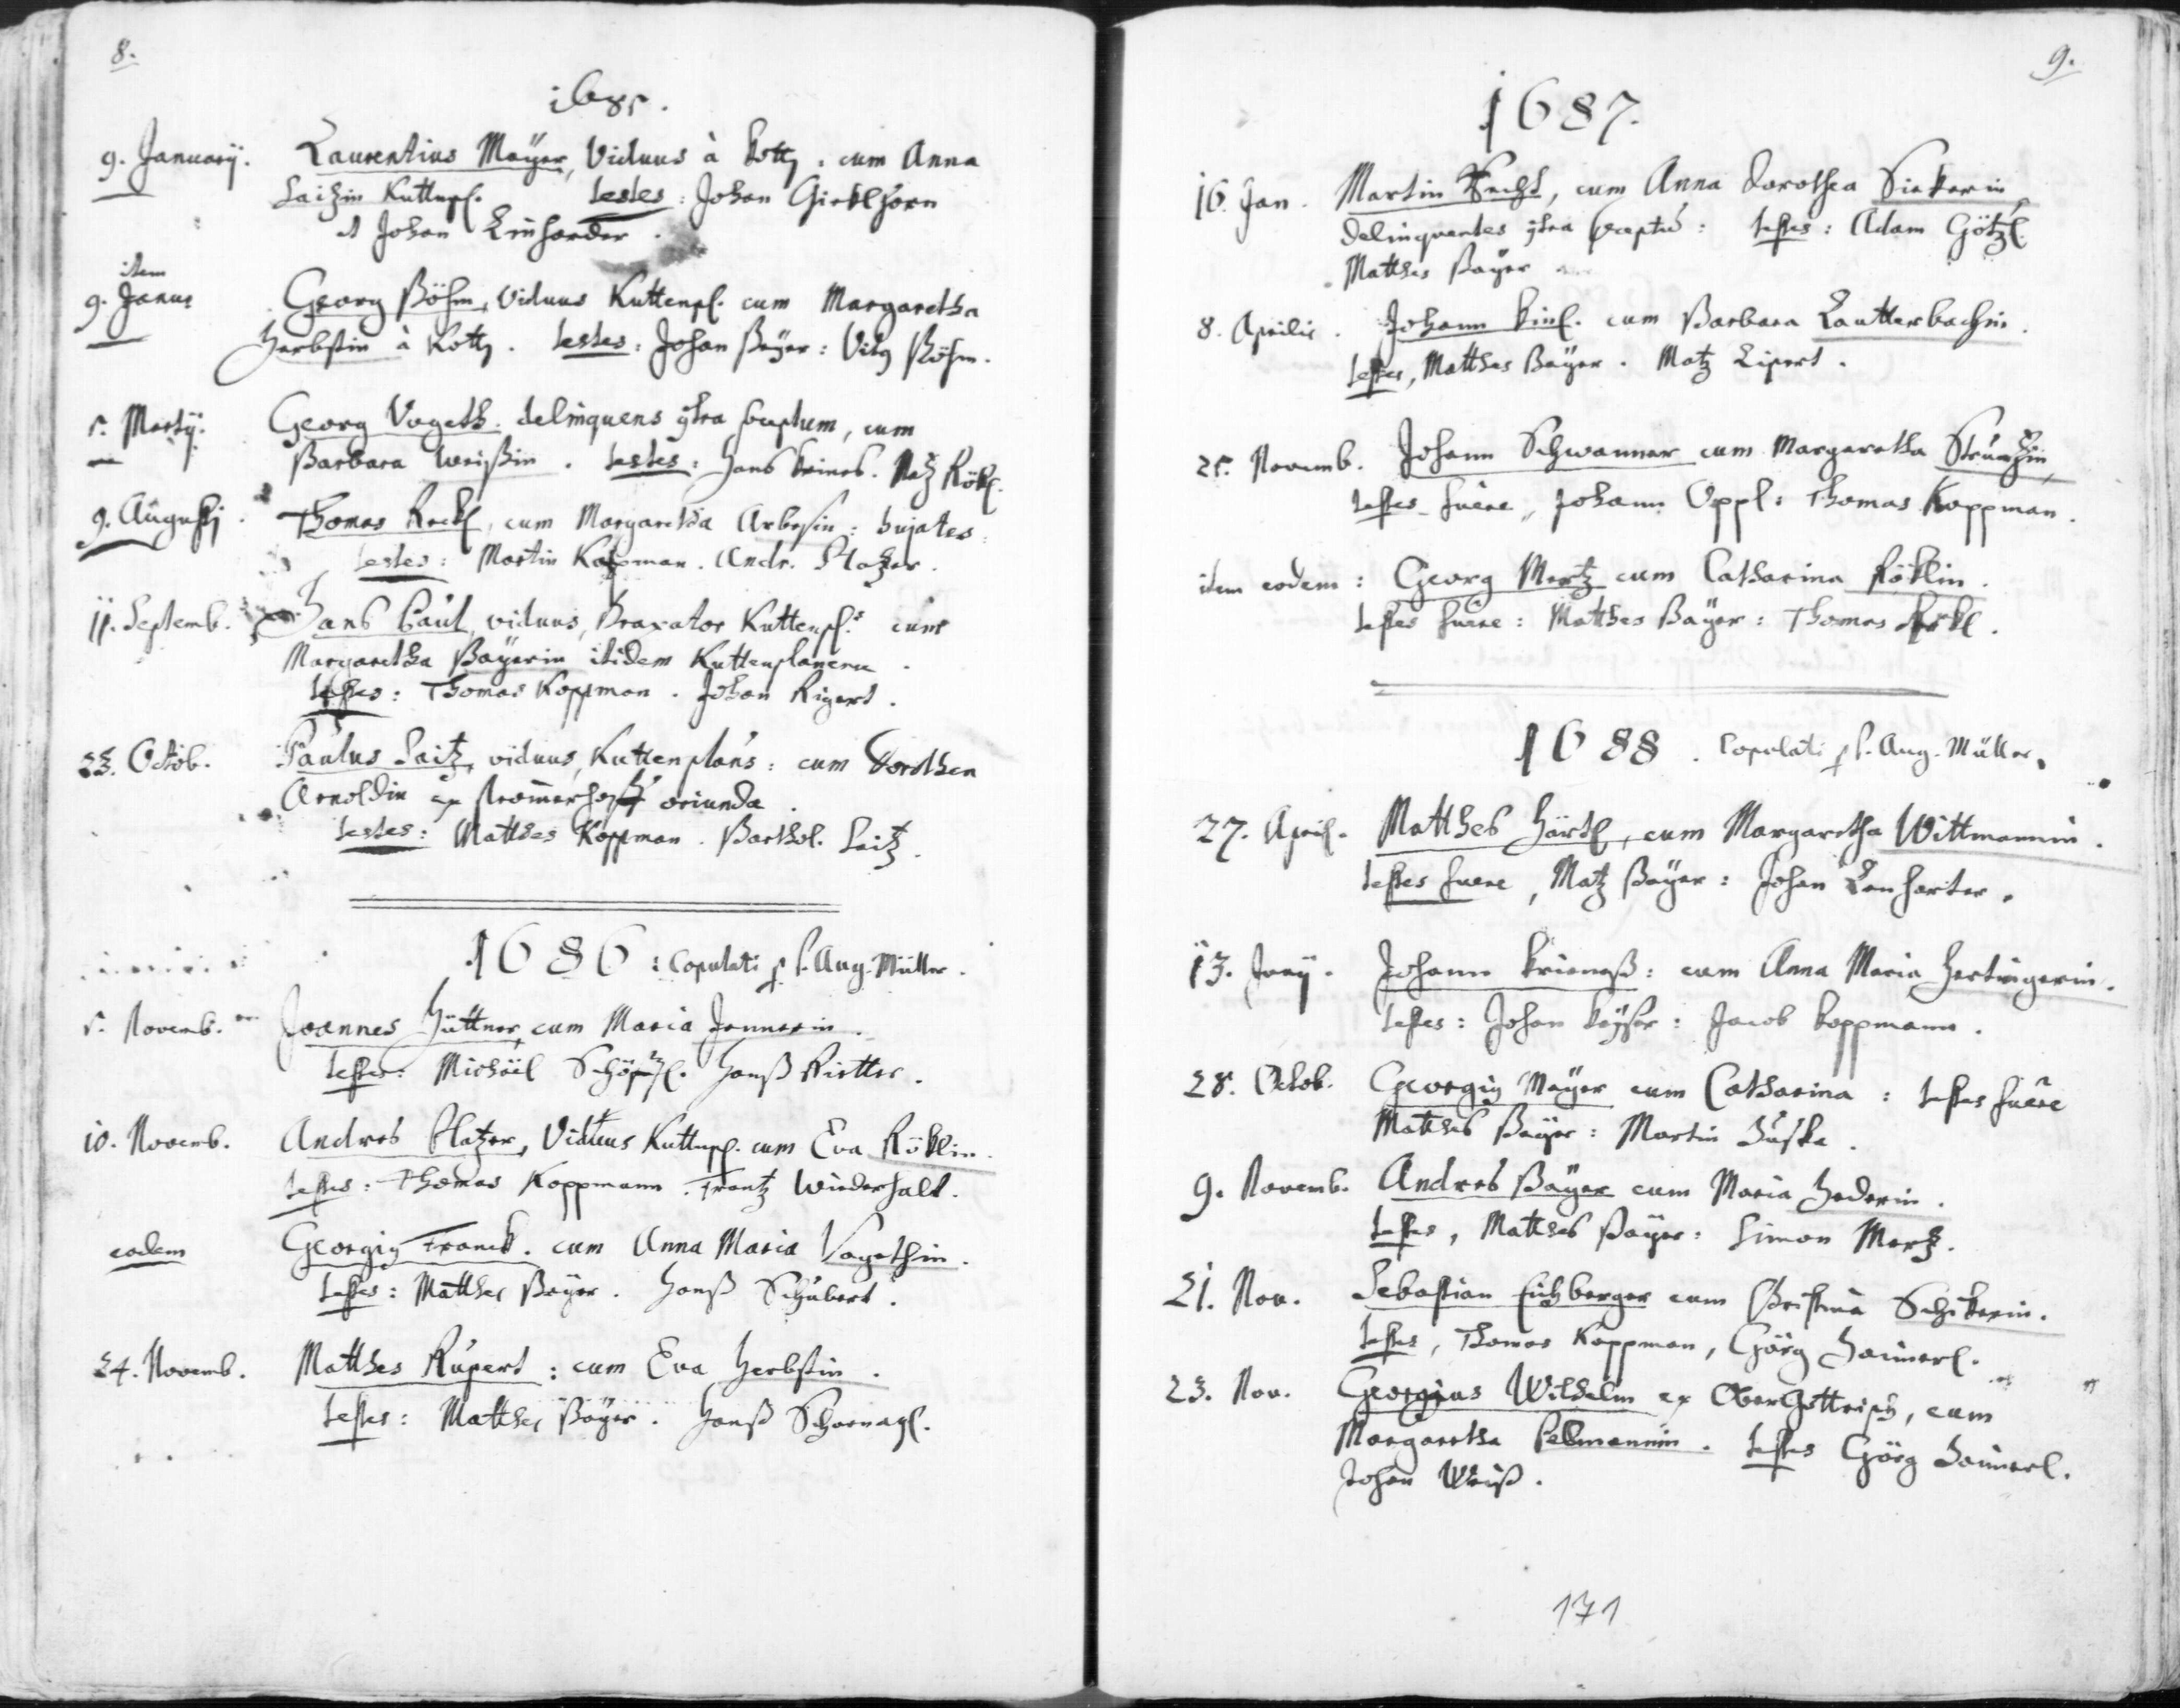 8.
1685.
9. Januarÿ. Laurentius Maÿer, Viduus à Kottz. cum Anna
Saitzin Kuttenpl. testes: Johan Gicklhorn
et Johan Linharder.
item
9. Janua Georg Böhm, Viduus Kuttenpl. cum Margaretha
Herbstin à Kottz. testes: Johan Baÿer: Vitus Böhm.
5. Martÿ. Georg Vogeth. delinquens contra sextum, cum
Barbara Weißin. testes: Hans Krines. Matz Rökl.
9. Augusti. Thomas Rockl, cum Margaretha Arbesin: hujates:
testes: Martin Kopman. Andr. Platzer.
11. Septemb. Hans Paul, viduus, Braxator Kuttenpl. cum
Margaretha Baÿerin itidem Kuttenplanens.
testes: Thomas Koppman. Johan Rigert.
23. Octob. Paulus Saitz, viduus, Kuttenplans: cum Dorothea
Arnoldin ex oriunda.
testes: Matthes Koppman. Barthol. Saitz.
1686: Copulati p P. Aug. Müller.
5. Novemb. Joannes Hüttner, cum Maria Jennerin.
testes: Michäel Schöpfl. Hanß Rietter.
10. Novemb. Andres Platzer, Viduus Kuttnpl. cum Eva Röklin.
testes: Thomas Koppmann. Frantz Wiederhalt.
eodem Georgius Franck. cum Anna Maria Vogethin.
testes: Matthes Baÿer. Hanß Schubert.
24. Novemb. Matthes Rupert: cum Eva Herbstin.
testes: Matthes Baÿer. Hanß Schornagl.
9.
1687.
16. Jan. Martin Hecht, cum Anna Dorothea Siekerin,
delinquentes contra sextum: testes: Adam Götzl.
Matthes Baÿer
8. Aprilis. Johann Kinl. cum Barbara Lautterbachin.
testes, Matthes Baÿer. Matz Lipert.
25. Novemb. Johann Schwanner cum Margaretha Strunzin,
testes fuere, Johann Oppl: Thomas Koppman.
item eodem: Georg Mertz cum Catharina Röklin.
testes fuere: Matthes Baÿer: Thomas Rökl.
1688. Copulati p P. Aug. Müller.
27. April. Matthes Härtl, cum Margaretha Wittmannin.
testes fuere, Matz Baÿer: Johan Lenharter.
13. Junÿ. Johann Krienaß: cum Anna Maria Hertingerin.
testes: Johan Käÿser: Jacob Koppmann.
28. Octob. Georgius Maÿer cum Catharina: testes fuere
Matthes Baÿer: Martin Huska.
9. Novemb. Andres Baÿer cum Maria Hederin.
testes, Matthes Baÿer: Simon Mertz.
21. Nov. Sebastian Eichberger cum Christina Schikerin.
testes, Thomas Koppman, Görg Haimerl.
23. Nov. Georgius Wilhelm ex OberGottrisch, cum
Margaretha Pellmannin. testes Görg Haimerl.
Johan Weiß.
171